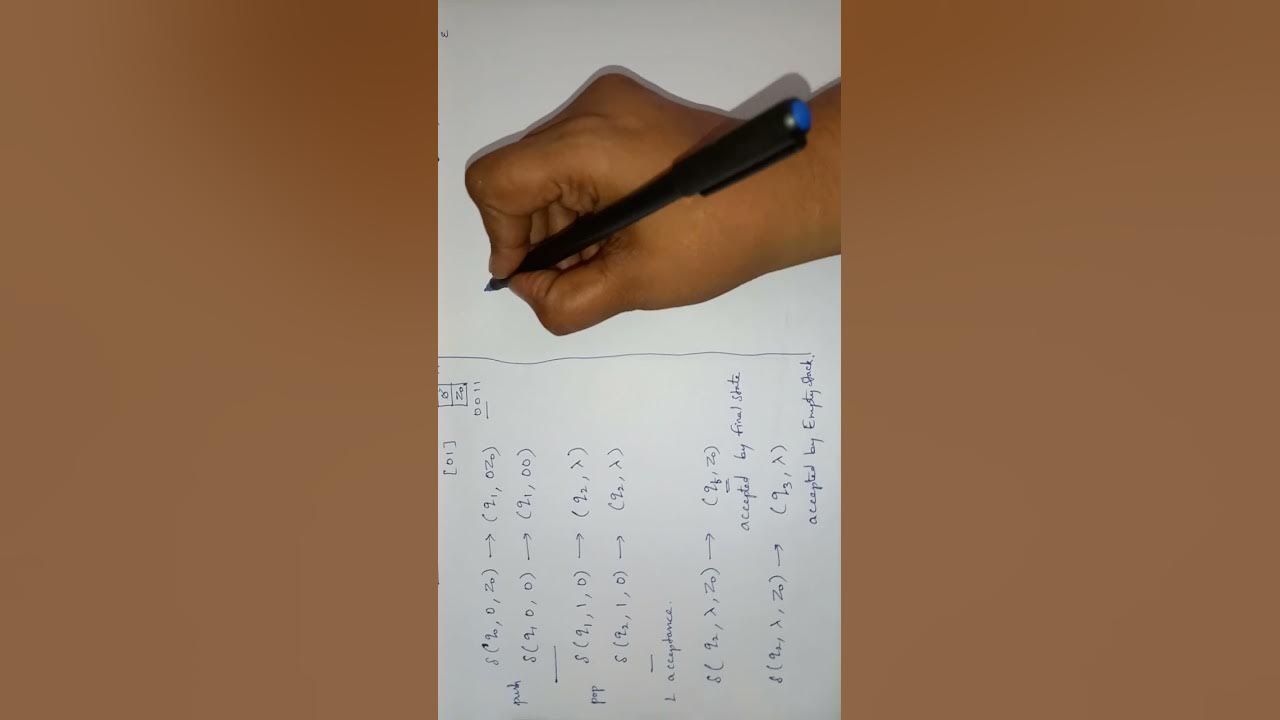 ε
[01]
0
Z0
0011
push δ(q0, 0, Z0) → (q1, 0Z0)
δ(q1, 0, 0) → (q1, 00)
pop δ(q1, 1, 0) → (q2, λ)
δ(q2, 1, 0) → (q2, λ)
acceptance.
δ(q2, λ, Z0) → (qf, Z0)
accepted by final state
δ(q2, λ, Z0) → (q3, λ)
accepted by Empty stack.